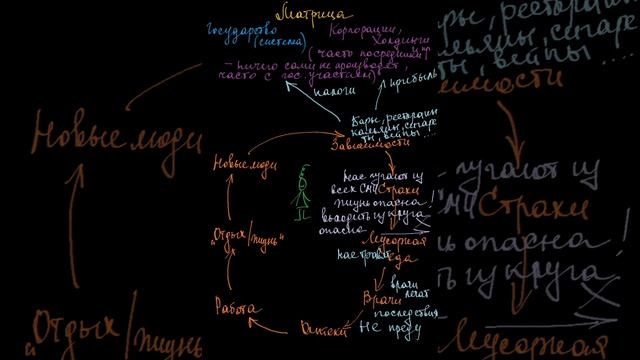 Матрица
Государство
(система)
Корпорации,
Холдинги
(часто посредники
- ничего сами не производят,
часто с гос. участием)
налоги
прибыль
Бары, рестораны
кальяны, сигаре
ты, вейпы ....
Зависимости
Новые люди
нас пугают из
всех СМИ Страхи
жизнь опасна!
выходить из круга
опасна
"Отдых/жизнь"
Мусорная
еда
нас травят
врачи
лечат
Врачи
последствия
Не преду
Аптеки
Работа
Новые люди
"Отдых/жизнь
ры, рестора
льяны, сигаре
ты, вейпы ....
имости
пугают из
СМИ Страхи
ь опасна!
ть из круга
Мусорная